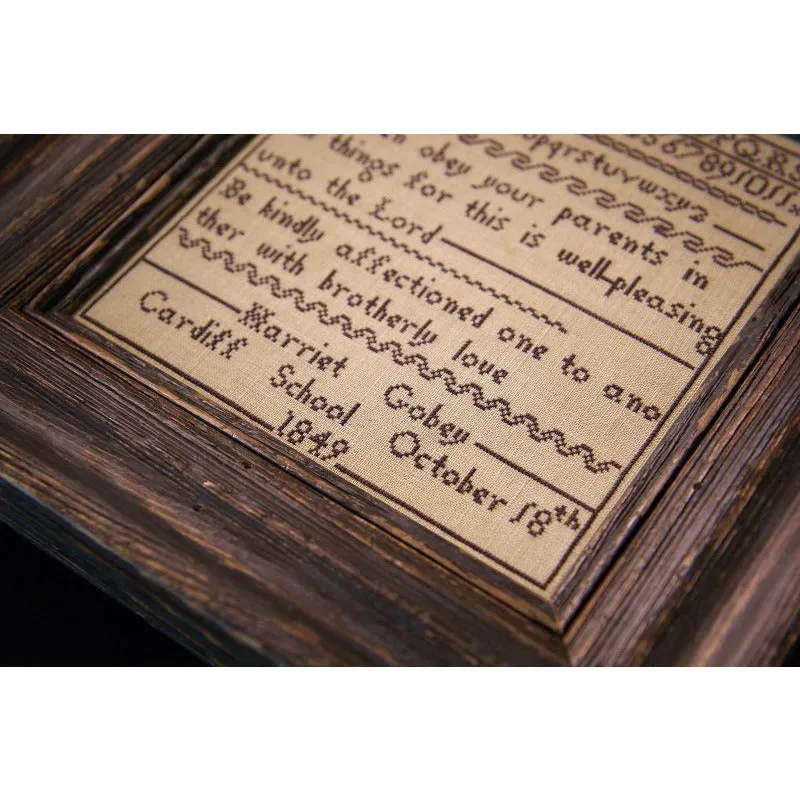 P Q R S
56789101112
opqrstuvwxyz
obey your parents in
things for this is well-pleasing
unto the Lord 8
Be kindly affectioned one to ano
ther with brotherly love
Harriet Gobey
Cardiff School October 18th
1849